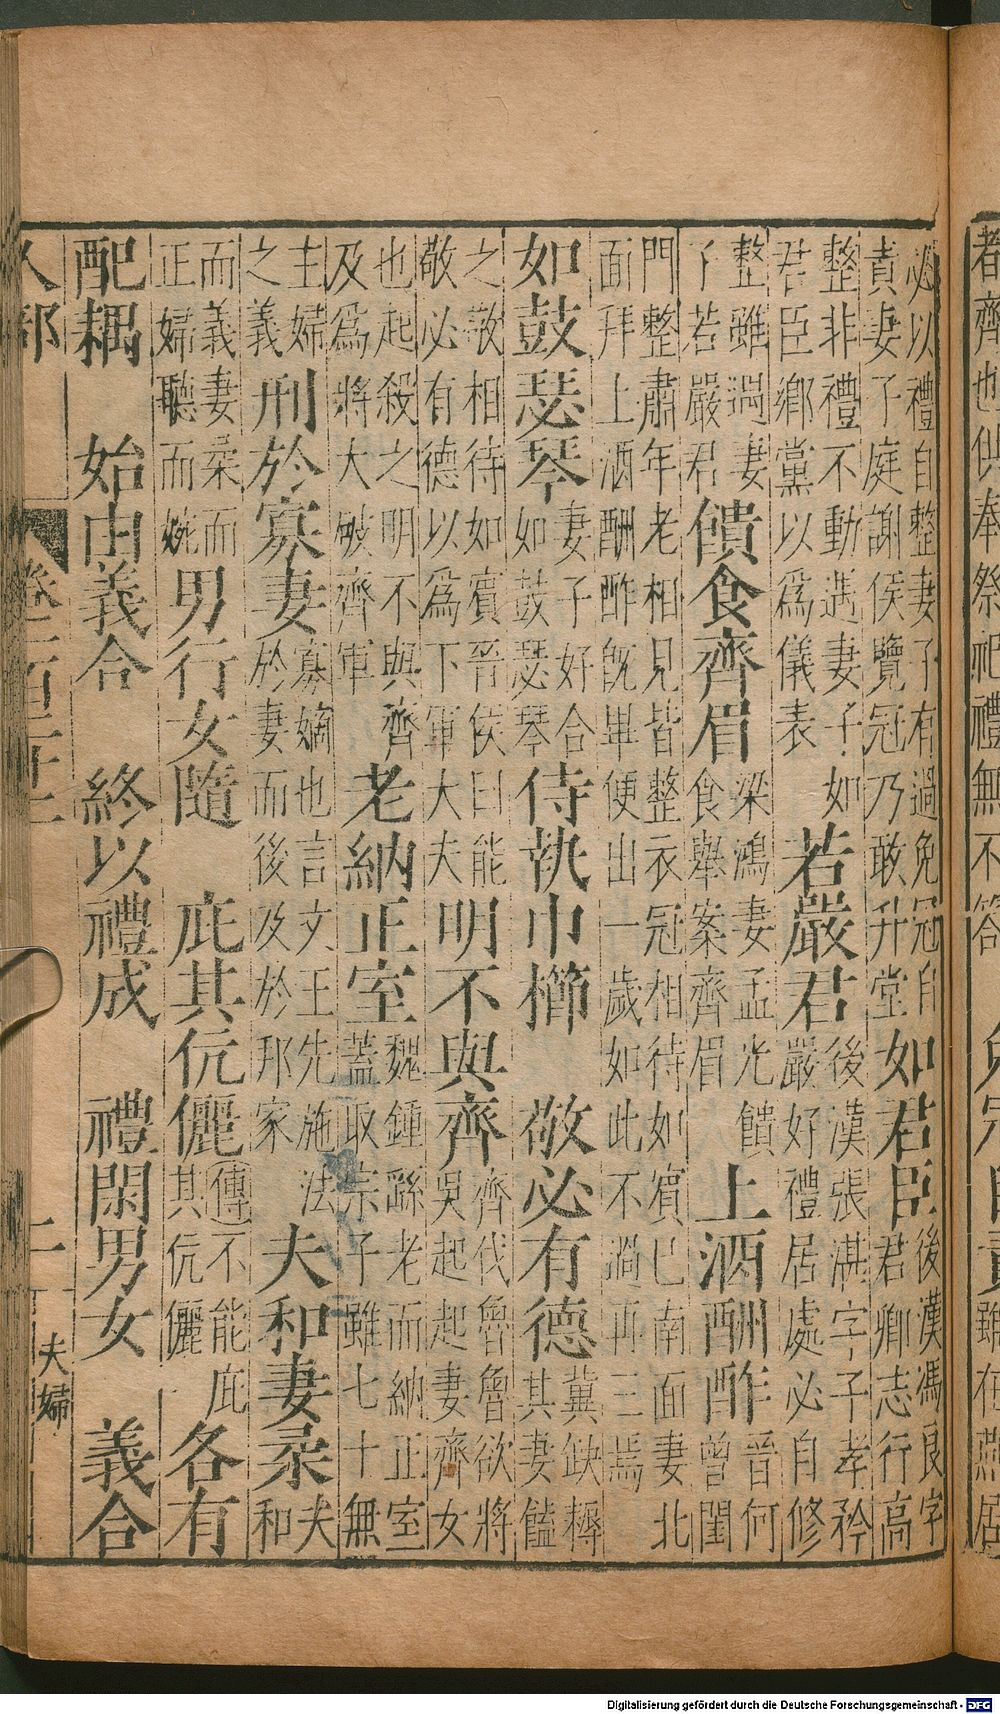 必以禮自整妻子有過免冠自
責妻子庭謝侯覽冠乃敢升堂
如君臣
後漢馮良字
君卿志行高
整非禮不動遇妻子如
君臣鄉黨以為儀表
若嚴君
後漢張湛字子孝矜
嚴好禮居處必自修
整雖遇妻
子若嚴君
饋食齊眉
梁鴻妻孟光饋
食舉案齊眉
上酒酬酢
晉何
曾閨
門整肅年老相見皆整衣冠相待如賓已南面妻北
面拜上酒酬酢既畢便出一歲如此不過再三焉
如鼓瑟琴
妻子好合
如鼓瑟琴
侍執巾櫛 敬必有德
冀缺耨
其妻饁
之敬相待如賓晉侯曰能
敬必有德以為下軍大夫
明不與齊
齊伐魯魯欲將
吳起起妻齊女
也起殺之明不與齊
及為將大破齊軍
老納正室
魏鍾繇老而納正室
蓋取宗子雖七十無
主婦
之義
刑於寡妻
寡嫡也言文王先施法
於妻而後及於邦家
夫和妻柔
夫
和
而義妻柔而
正婦聽而婉
男行女隨 庇其伉儷
傳不能庇
其伉儷
各有
配耦 始由義合 終以禮成 禮閑男女 義合
人部 二 夫婦
Digitalisierung gefördert durch die Deutsche Forschungsgemeinschaft - DFG